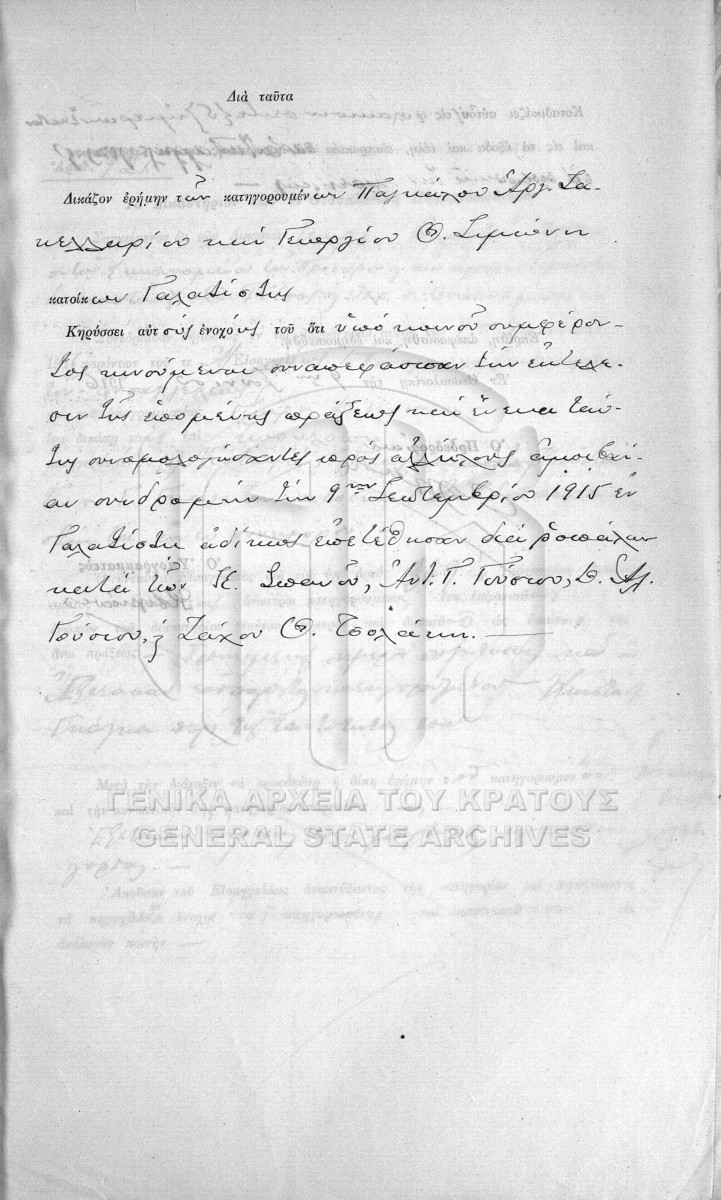 Διὰ ταῦτα
Δικάζον ἐρήμην τῶν κατηγορουμένων Πασχάλου Ἀργ. Σα-
κελλαρίου καὶ Γεωργίου Θ. Σιμώνη
κατοίκων Γαλατίστης
Κηρύσσει αὐτοὺς ἐνοχους τοῦ ὅτι ὑπὸ κοινοῦ συμφέρον-
τος κινούμενοι συναπεφάσισαν τὴν ἐκτέλε-
σιν τῆς ἑπομένης πράξεως καὶ ἕνεκα ταύ-
της συνομολογήσαντες πρὸς ἀλλήλους ἀμοιβαί-
αν συνδρομὴν τὴν 9ην Σεπτεμβρίου 1915 ἐν
Γαλατίστῃ ἀδίκως ἐπετέθησαν διὰ ῥοπάλων
κατὰ τῶν Σπανοῦ, Ἀντ. Γ. Γούσιου, Δ.
Γούσιου, ἢ Ζάχου Θ. Τσολάκη.
ΓΕΝΙΚΑ ΑΡΧΕΙΑ ΤΟΥ ΚΡΑΤΟΥΣ
GENERAL STATE ARCHIVES